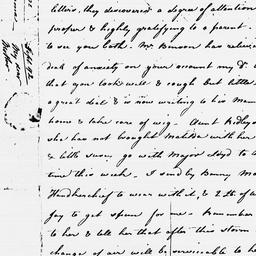 letters, they discovered a degree of attention
proper & highly gratifying to a parent.
to see you both. Mr. Benson has relieved
deal of anxiety on your account my D
that you look well & cough but little
a great deal & is now writing to his Mam
home & take care of wig. Aunt Ridgely
she has not bought Matilda with her
& little Susan, go with Major Loyd to a
time this week. I send by Benny
Handkerchief to wear with it, &
Jay to get spun for me. Remember
to her & tell her that after this storm
change of air will be serviceable to h